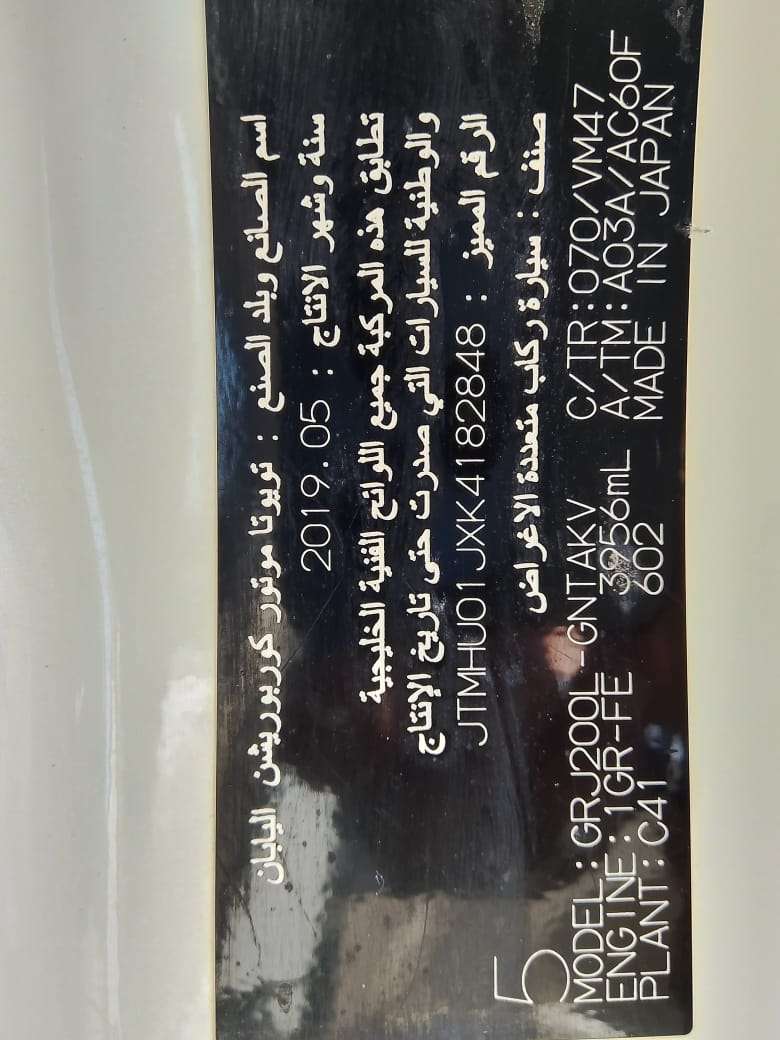 اسم الصانع وبلد الصنع : تويوتا موتور كوربوريشن اليابان
سنة وشهر الانتاج : 2019.05
تطابق هذه المركبة جميع اللوائح الفنية الخليجية
والوطنية للسيارات التي صدرت حتى تاريخ الإنتاج
الرقم المميز : JTMHU01JXK4182848
صنف : سيارة ركاب متعددة الاغراض
5
MODEL:GRJ200L-GNTAKV C/TR:070/VM47
ENGINE:1GR-FE 3956mL A/TM:A03A/AC60F
PLANT:C41 602 MADE IN JAPAN